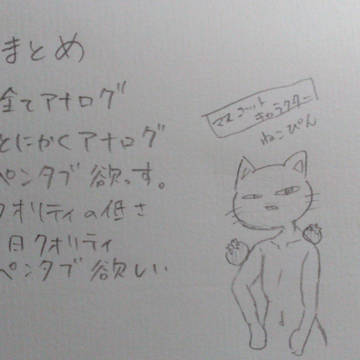 まとめ
全てアナログ
とにかくアナログ
ペンタブ欲っす。
クオリティの低さ
日クオリティ
ペンタブ欲しい
マスコット
キャラクター
ねこぴん